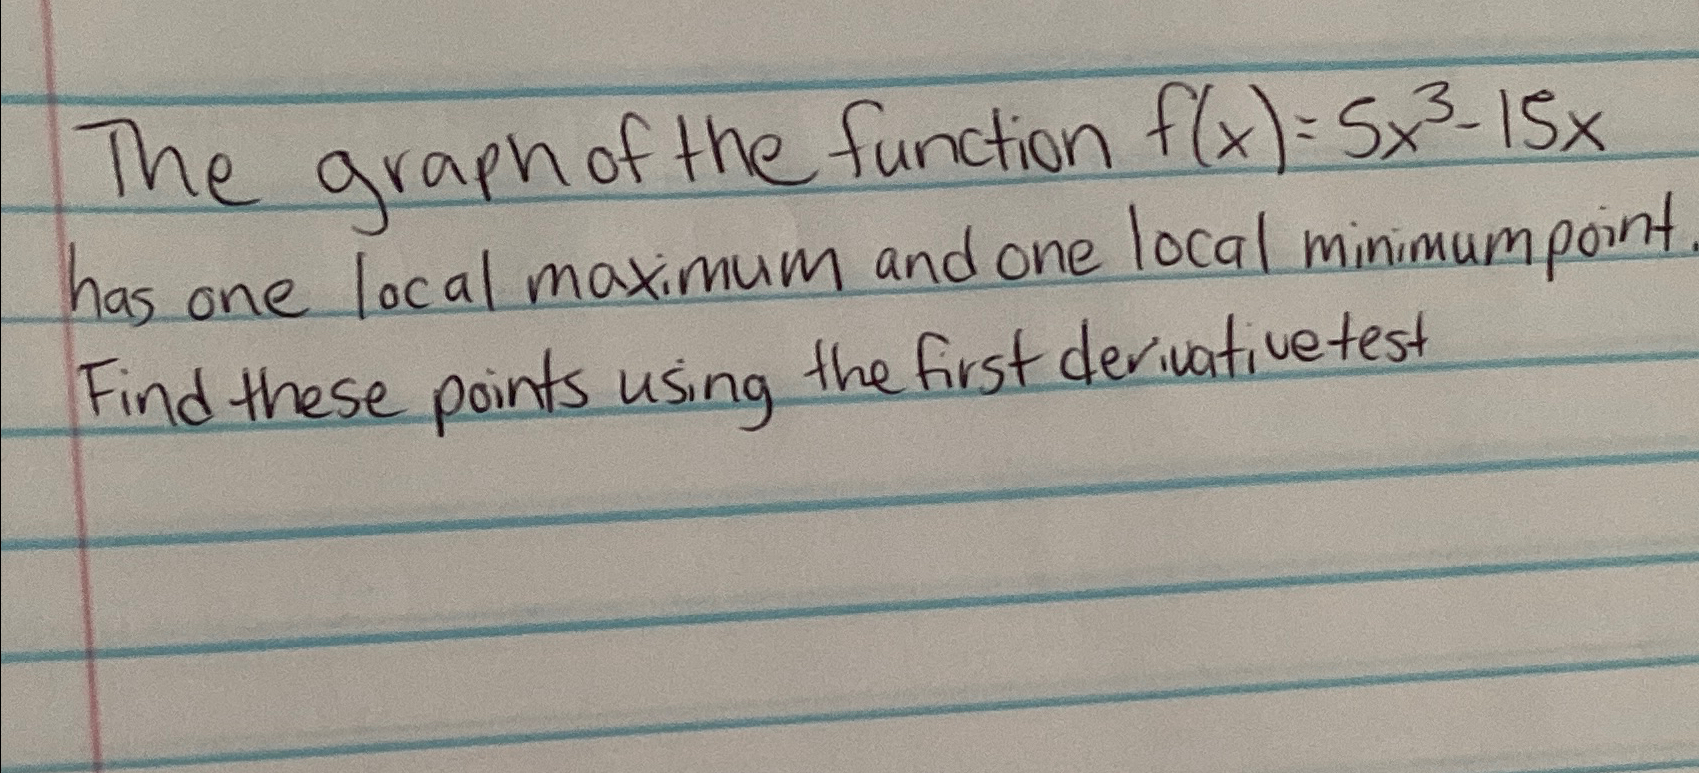 The graph of the function f(x)=5x³-15x
has one local maximum and one local minimum point.
Find these points using the first derivative test